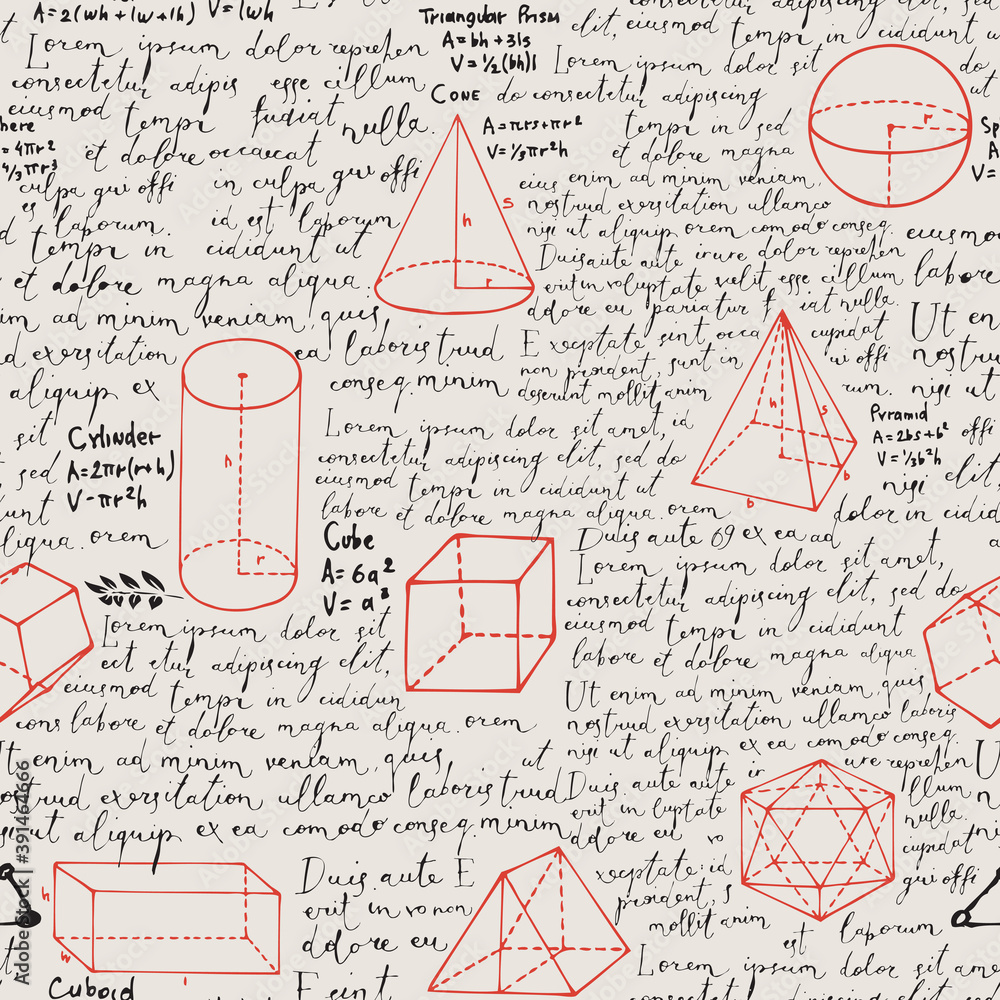 A=2(wh+lw+lh) V=lwh
Triangular Prism
A=bh+3ls
V=½(bh)l
Lorem ipsum dolor reprehen
consectetur adipis esse cillum
eiusmod tempi fugiat nulla.
et dolore occaecat
culpa qui offi in culpa qui offi
es laborum. id est laborum
tempi in cididunt ut
et dolore magna aliqua.
im ad minim veniam, quis
d exersitation
aliquip ex
sit
sed
unt
liqua. orem
here
= 4πr2
4/3πr3
Cone
A=πrs+πr2
V=⅓πr2h
s
h
r
elit, eiusmod tempi in cididunt u
Lorem ipsum dolor sit
do consectetur adipiscing
tempi in sed
et dolore magna
eius enim ad minim veniam,
nostrud exersitation ullamco
nisi ut aliquip orem comodo conseq.
Duis aute aute irure dolor reprehen
erit in voluptate velit esse cillum
dolore eu pariatur f iat nulla.
Exceptate sint occa cupidat
non proident, sunt in ui offi
deserunt mollit anim rum.
do
ut
r
Sp
A
V=
eiusmo
labore
Ut en
nostru
nisi ut
offi
elit,
nisi
dolor in cidid
ea laboris trud
conseq. minim
Lorem ipsum dolor sit amet, id
consectetur adipiscing elit, sed do
eiusmod tempi in cididunt ut
labore et dolore magna aliqua. orem
Cylinder
A=2πr(r+h)
V-πr2h
h
r
h
s
b
b
Pyramid
A=2bs+b2
V=⅓b2h
Cube
A=6a2
V=a3
Duis aute 69 ex ea ad
Lorem ipsum dolor sit amet,
consectetur adipiscing elit, sed do
eiusmod tempi in cididunt
labore et dolore magna aliqua
Ut enim ad minim veniam, quis
nostrud exersitation ullamco laboris
nisi ut aliquip ex ea comodo conseq
Lorem ipsum dolor sit
etur adipiscing elit,
eiusmod tempi in cididun
cons labore et dolore magna aliqua. orem
Ut enim ad minim veniam, quis, ut
ostrud exersitation ullamco laboris trud
si ut aliquip ex ea comodo conseq. minim
Duis aute aute ir
erit in luptate
dolore eu vo
xceptate id
proident, s
mollit anim
est laborum
ure reprehen U
llum n
nulla.
cupidat
qui offi
Duis aute E
erit in vo non
dolore eu
E sint
h
w
l
Cuboid
Lorem ipsum dolor sit am
consectetur adipiscing elit,
Adobe Stock | #391464666